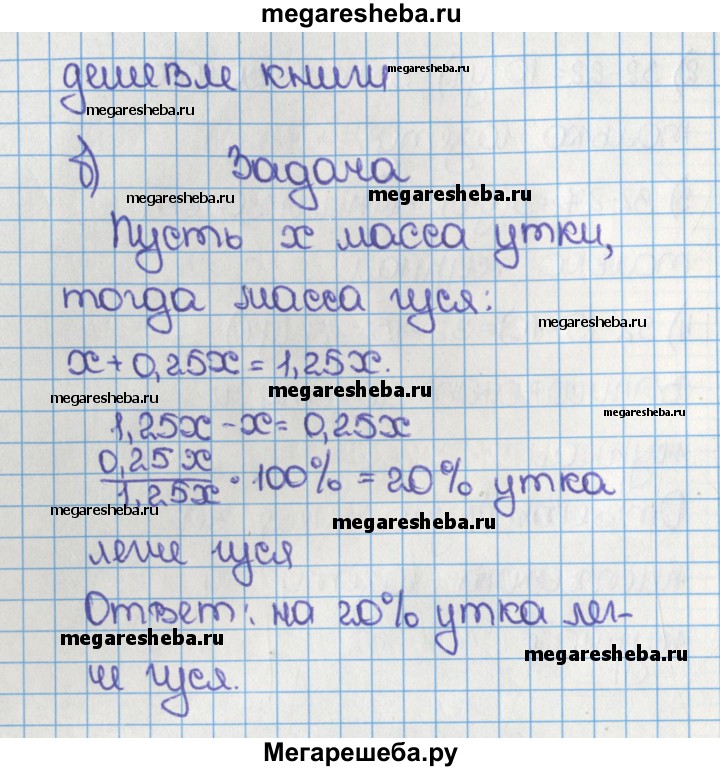 megaresheba.ru
дешевле книги megaresheba.ru
megaresheba.ru
б) Задача
megaresheba.ru megaresheba.ru
Пусть x масса утки,
тогда масса гуся:
megaresheba.ru
x + 0,25x = 1,25x.
megaresheba.ru megaresheba.ru
megaresheba.ru
1,25x - x = 0,25x
0,25x/1,25x · 100% = 20% утка
megaresheba.ru megaresheba.ru
легче гуся
Ответ: на 20% утка лег-
megaresheba.ru megaresheba.ru
че гуся.
Мегарешеба.ру